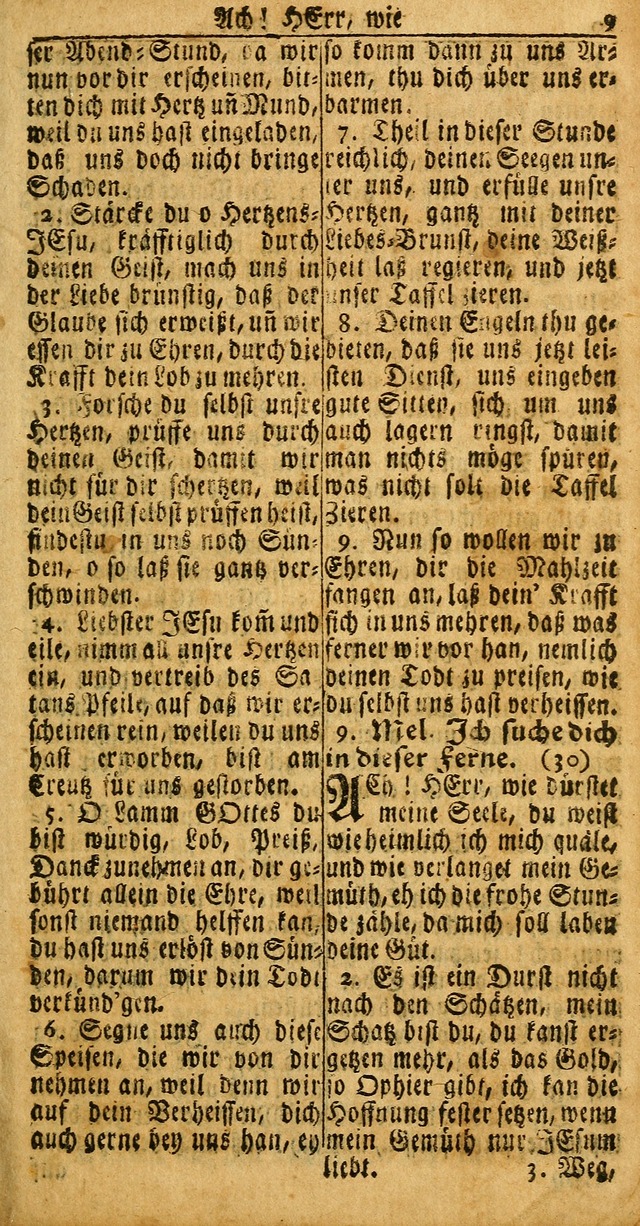 Ach! HErr, wie 9
ser Abend-Stund, da wir
nun vor dir erscheinen, bit-
ten dich mit Hertz uñ Mund,
weil du uns hast eingeladen,
daß uns doch nicht bringe
Schaden.
2. Stärcke du o Hertzens-
JEsu, kräfftiglich durch
deinen Geist, mach uns in
der Liebe brünstig, daß der
Glaube sich erweißt, uñ wir
essen dir zu Ehren, durch die
Krafft dein Lob zu mehren.
3. Forsche du selbst unsre
Hertzen, prüffe uns durch
deinen Geist, damit wir
nicht für dir schertzen, weil
dein Geist selbst prüffen heist,
findestu in uns noch Sün-
den, o so laß sie gantz ver-
schwinden.
4. Liebster JEsu kom̃ und
eile, nimm all unsre Hertzen
ein, und vertreib des Sa
tans Pfeile, auf daß wir er-
scheinen rein, weilen du uns
hast erworben, bist am
Creutz für uns gestorben.
5. O Lamm GOttes du
bist würdig, Lob, Preiß,
Danck zunehmen an, dir ge-
bührt allein die Ehre, weil
sonst niemand helffen kan,
du hast uns erlöst von Sün-
den, darum wir dein Todt
verkünd'gen.
6. Segne uns auch diese
Speisen, die wir von dir
nehmen an, weil denn wir
auf dein Verheissen, dich
auch gerne bey uns han, ey
so komm dann zu uns Ar-
men, thu dich über uns er-
barmen.
7. Theil in dieser Stunde
reichlich, deinen Seegen un-
ter uns, und erfülle unsre
Hertzen, gantz mit deiner
Liebes-Brunst, deine Weiß-
heit laß regieren, und jetzt
unser Taffel zieren.
8. Deinen Engeln thu ge-
bieten, daß sie uns jetzt lei-
sten Dienst, uns eingeben
gute Sitten, sich um uns
auch lagern ringst, damit
man nichts möge spüren,
was nicht solt die Taffel
Zieren.
9. Nun so wollen wir zu
Ehren, dir die Mahlzeit
fangen an, laß dein' Krafft
sich in uns mehren, daß was
ferner wir vor han, nemlich
deinen Todt zu preisen, wie
du selbst uns hast verheissen.
9. Mel. Ich suche dich
in dieser Ferne. (30)
ACh! HErr, wie dürstet
meine Seele, du weist
wie heimlich ich mich quäle,
und wie verlanget mein Ge-
müth, eh ich die frohe Stun-
de zähle, da mich soll laben
deine Güt.
2. Es ist ein Durst nicht
nach den Schätzen, mein
Schatz bist du, du kanst er-
getzen mehr, als das Gold,
so Ophier gibt, ich kan die
Hoffnung fester setzen, wenn
mein Gemüth nur JEsum
liebt. 3. Weg,